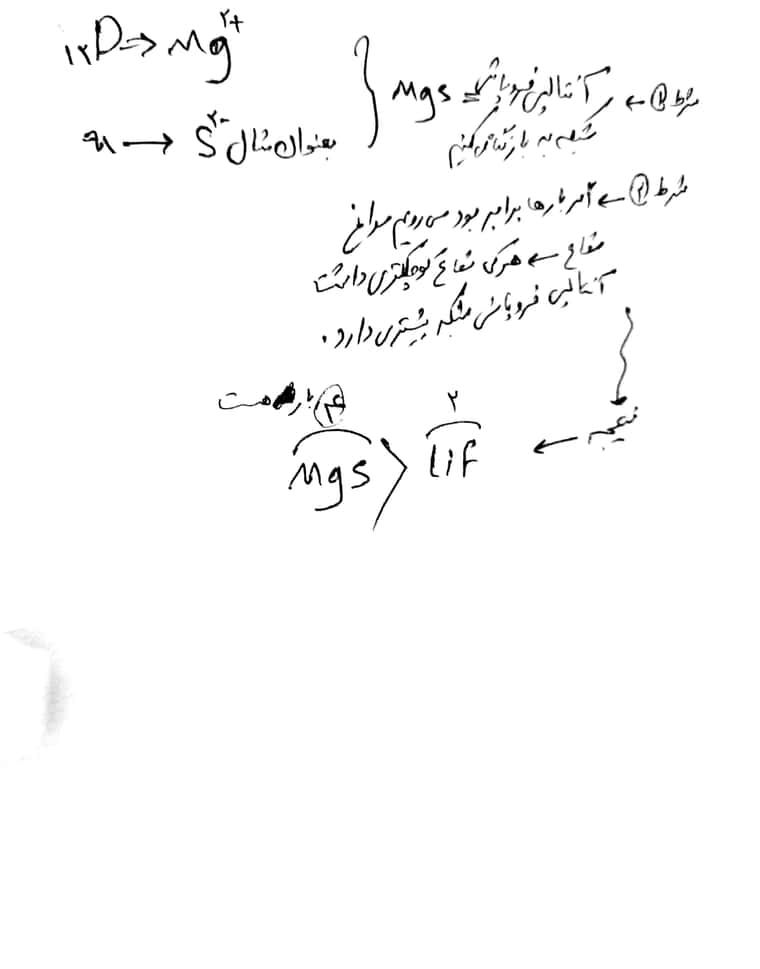 ₁₂D → Mg²⁺
x → S²⁻ بعنوان مثال } MgS
شرط ① ← آنتالپی فروپاشی
شبکه به بار نگاه می کنیم
شرط ② ← اگر بارها برابر بود می رویم سراغ
شعاع ← هرکی شعاع کوچکتری داشت
آنتالپی فروپاشی شبکه بیشتری دارد.
نتیجه ←
۴ بار هست ۲
MgS > LiF